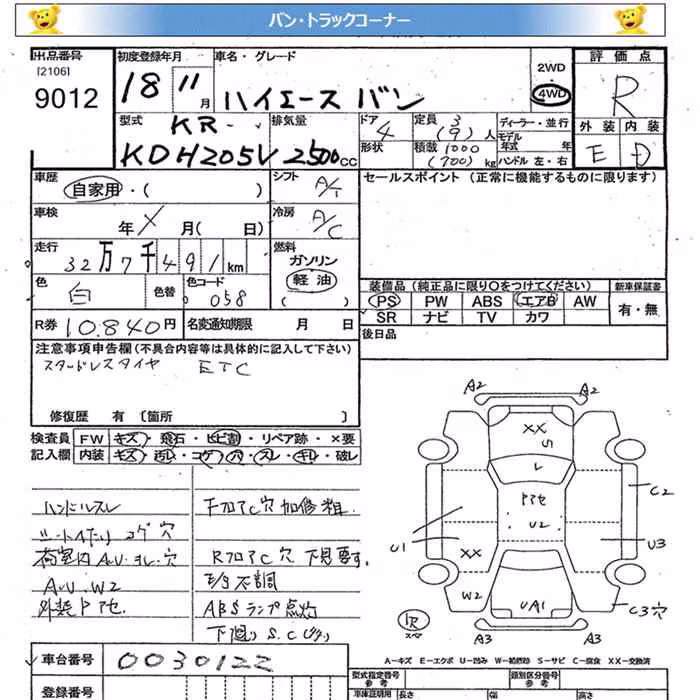 バン・トラックコーナー
出品番号 初度登録年月 車名・グレード 2WD 評価点
[2106]
9012 18 11月 ハイエース バン 4WD R
型式 排気量 ドア 定員 3 ディーラー・並行 外装 内装
KR- 4 (9)人 モデル年式 年
KDH205V 2500cc 形状 積載 1000 (700)kg ハンドル 左・右 E D
車歴 シフト セールスポイント (正常に機能するものに限ります)
自家用・( ) A/T
車検 冷房
年 X 月( 日) A/C
走行 燃料
32万7千491km ガソリン
色 色替 色コード 軽油 装備品 (純正品に限り○をつけてください) 新車保証書
白 058 ( ) PS PW ABS エアB AW 有・無
SR ナビ TV カワ
R券 10.840円 名変通知期限 月 日 後日品
注意事項申告欄 (不具合内容等は具体的に記入して下さい)
スタッドレスタイヤ ETC
修復歴 有 [箇所 ]
検査員 FW キズ・飛石・ヒビ割・リペア跡・×要
記入欄 内装 キズ・汚レ・コゲ・穴・スレ・キレ・破レ
ハンドルスレ 下回リ
シートイタリ コゲ 穴
荷室内 A.U.ヨレ.穴 RフロアC穴 下見要す。
A.U.W2
外装トアセ ABSランプ点灯
下廻リ S.C
A2 A2
XX S
L
トアセ
U2
C2
U1 U3
XX
W2 UA1
C3穴
R スペア
A3 A3
A-キズ E-エクボ U-凹み W-補修跡 S-サビ C-腐食 XX-交換済
車台番号 0030122 型式指定番号 参考 類別区分番号 参考
登録番号 車体証明用 長さ 幅 高さ